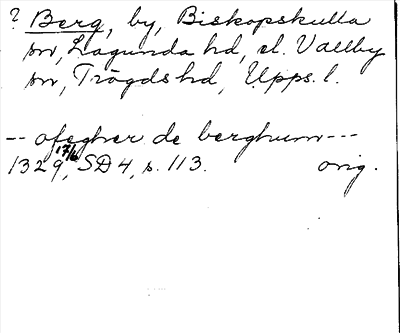 ? Berg, by, Biskopskulla
sn, Lagunda hd, el. Vallby
sn, Trögds hd, Upps. l.
-- ofegher de berghum ---
1329 17/6, SD 4, s. 113. orig.